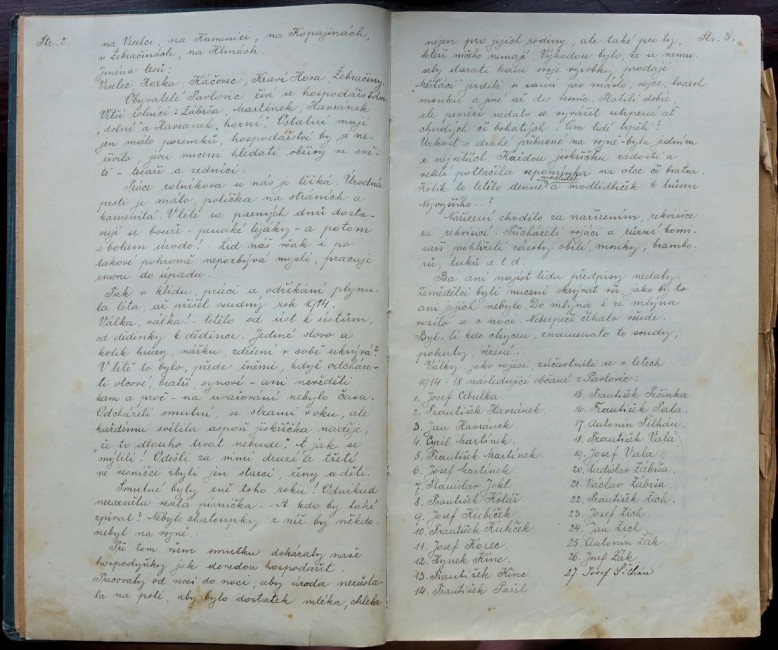 Str. 2.
na Vsulci, na Kamenici, na Kopajinách,
v Žebračinách, na Hlinách.
Jména lesů:
Vsulec, Horka, Káčovec, Kraví Hora, Žebračiny.
Obyvatelé Pavlovic živí se hospodářstvím
Větší rolníci: Zábrša, Martínek, Havránek
"dolní" a Havránek "horní". Ostatní mají
jen málo pozemků, hospodářství by je ne-
živilo, jsou nuceni hledati obživu ve svě-
tě - tesaři a zedníci.
Práce rolníkova u nás je těžká. Úrodné
prsti je málo, políčka na stráních a
kamenitá. V létě za parných dnů dosta-
vují se bouře - prudké lijáky - a potom
s bohem úrodo! - Lid náš však i po
takové pohromě nepozbývá mysli, pracuje
znovu do úpadu.
Tak v klidu, práci a odříkání, plynu-
la léta, až přišel osudný rok 1914.
Válka, válka! - letělo od úst k ústům,
od dědinky k dědince. Jediné slovo a
kolik hrůzy, nářku, zděšení v sobě ukrývá?
V létě to bylo, přede žněmi, když odcháze-
li otcové, bratři, synové - ani nevěděli
kam a proč - na uvažování nebylo času.
Odcházeli smutní, se slzami v oku, ale
každému svítila aspoň jiskřička naděje,
že to dlouho trvat nebude". A jak se
mýlili! Odešli za nimi druzí a třetí
ve vesničce zbyli jen starci, ženy a děti.
Smutné byly žně toho roku! Odnikud
nezazněla veselá písnička. - A kdo by také
zpíval! Nebylo chaloupky, z níž by někdo
nebyl na vojně.
Při tom všem smutku dokázaly naše
hospodyňky jak dovedou hospodařit.
Pracovaly od noci do noci, aby úroda nezůsta-
la na poli, aby bylo dostatek mléka, chleba
Str. 3.
nejen pro jejich rodiny, ale také pro ty,
kteří ničeho nemají. Výhodou bylo, že u nemu-
sily starati kam svoje výrobky prodají.
Měšťáci jezdili k nám pro máslo, vejce, tvaroh,
mouku a jiné až do vesnic. Platili dobře,
ale peněz nedalo se vyvážit utrpení ať
chudých či bohatých! Čím lidé trpěli!
Úzkost o drahé příbuzné na vojně byla jedním
z největších. Každou jiskřičku radosti a
veselí potlačila vzpomínka na otce či bratra.
Kolik to letělo denně myšlenek a modlitbiček k trůnu
Nejvyššího - !
Nařízení chodilo za nařízením, rekvisice
za rekvisicí. Přicházeli vojáci a různí komi-
saři, pohltili zásoby obilí, mouky, brambo-
rů, tuků a t. d.
Ba ani najíst lidu předpisy nedaly.
Zemědělci byli nuceni skrývat vše jako by to
ani jejich nebylo. Do mlýna i ze mlýna
vozilo se v noci. Nebezpečí číhalo všude.
Byl-li kdo chycen, znamenalo to soudy,
pokuty, vězení.
Války, jako vojáci, zúčastnili se v letech
1914-18 následující občané z Pavlovic:
1. Josef Cibulka
2. František Havránek
3. Jan Havránek
4. Cyril Martínek
5. František Martínek
6. Josef Martínek
7. Stanislav Jokl
8. František Kolář
9. Josef Kubíček
10. František Kubíček
11. Josef Korec
12. Hynek Kinc
13. František Kinc
14. František Pařil
15. František Pečinka
16. František Pala
17. Antonín Šilhán
18. František Vala
19. Josef Vala
20. Ladislav Zábrša
21. Václav Zábrša
22. František Zich
23. Josef Zich
24. Jan Zich
25. Antonín Žák
26. Josef Žák
27 Josef Šilhán